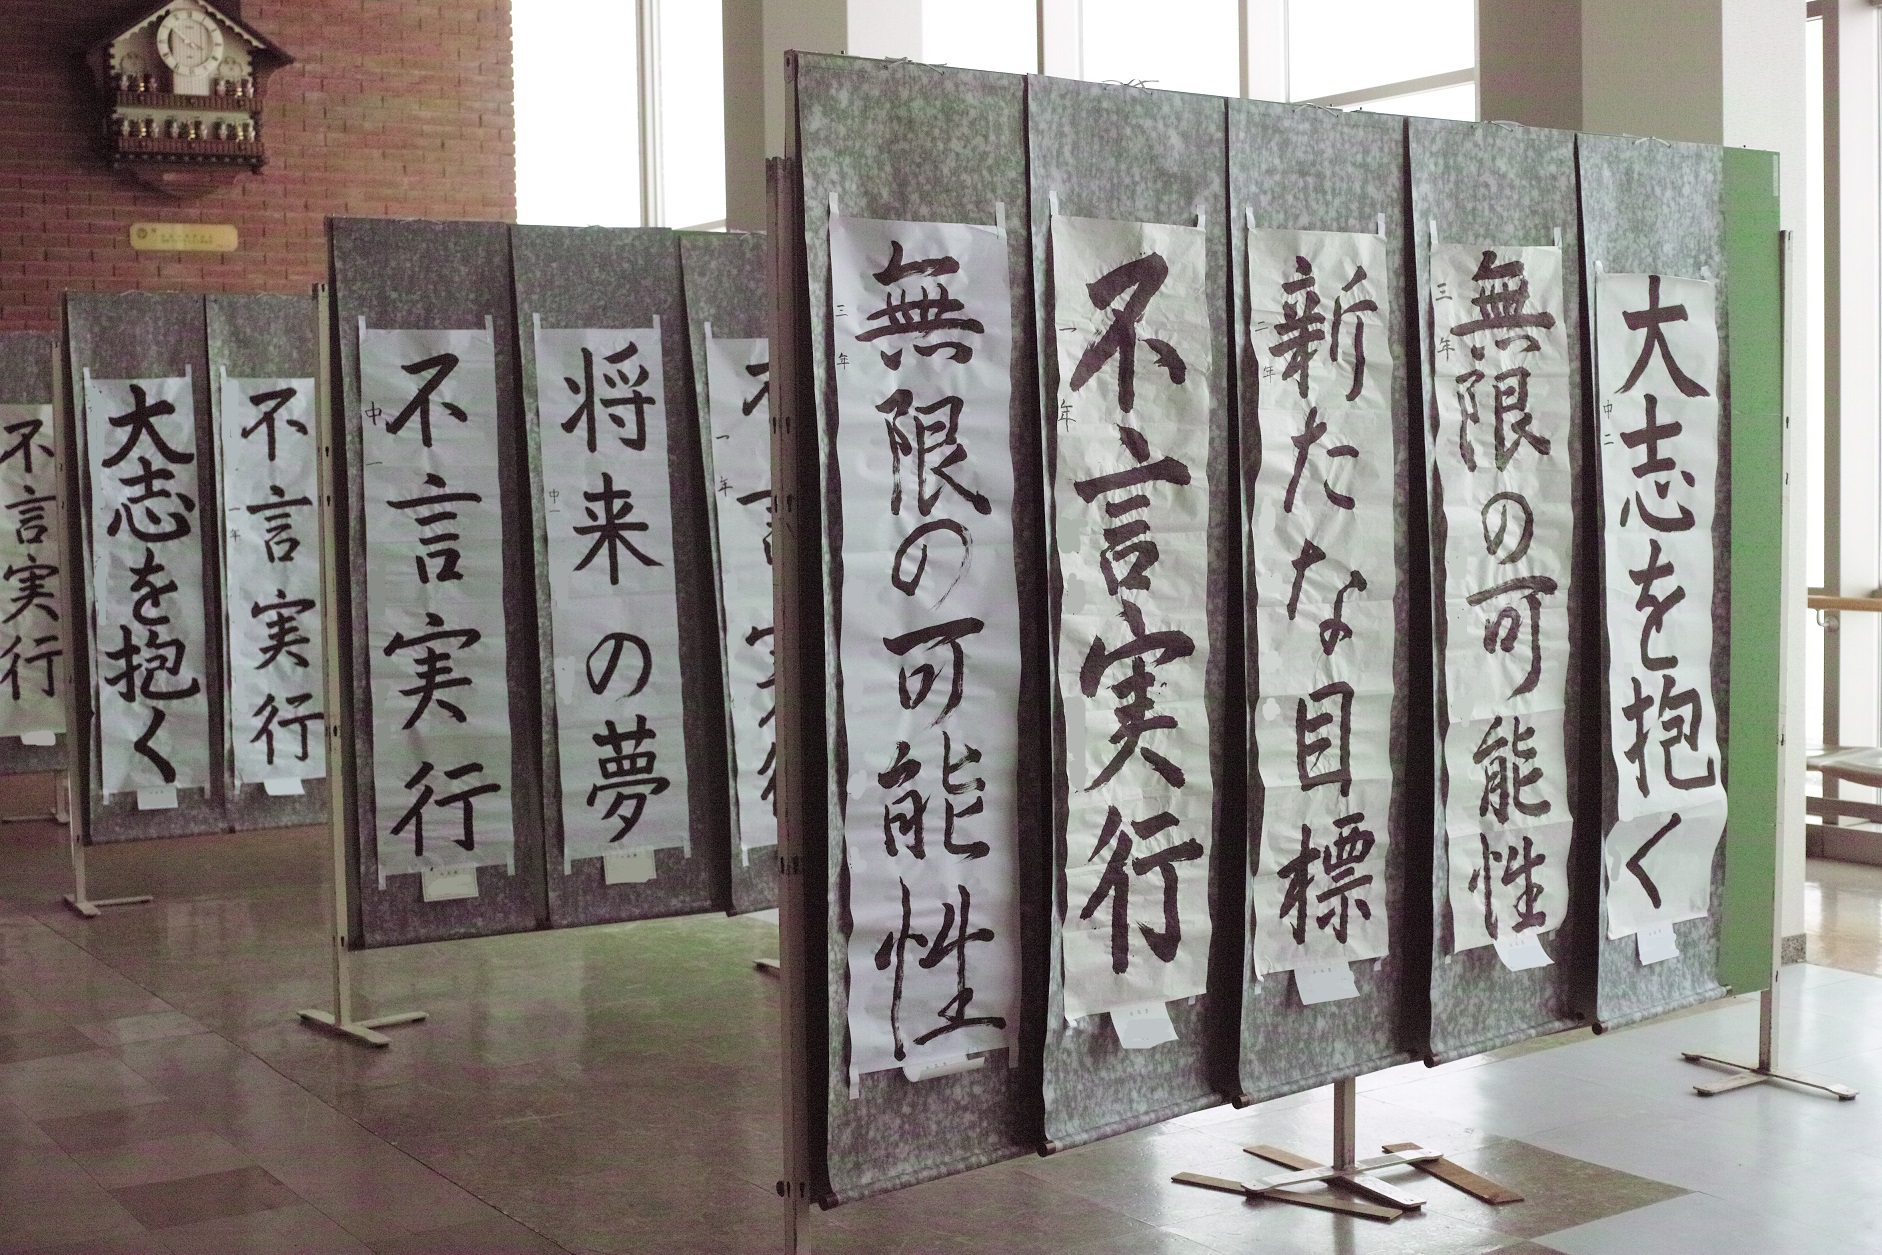 不言実行
大志を抱く
不言実行
一年
不言実行
中一
将来の夢
中一
一年
無限の可能性
三年
不言実行
一年
新たな目標
二年
無限の可能性
三年
大志を抱く
中二